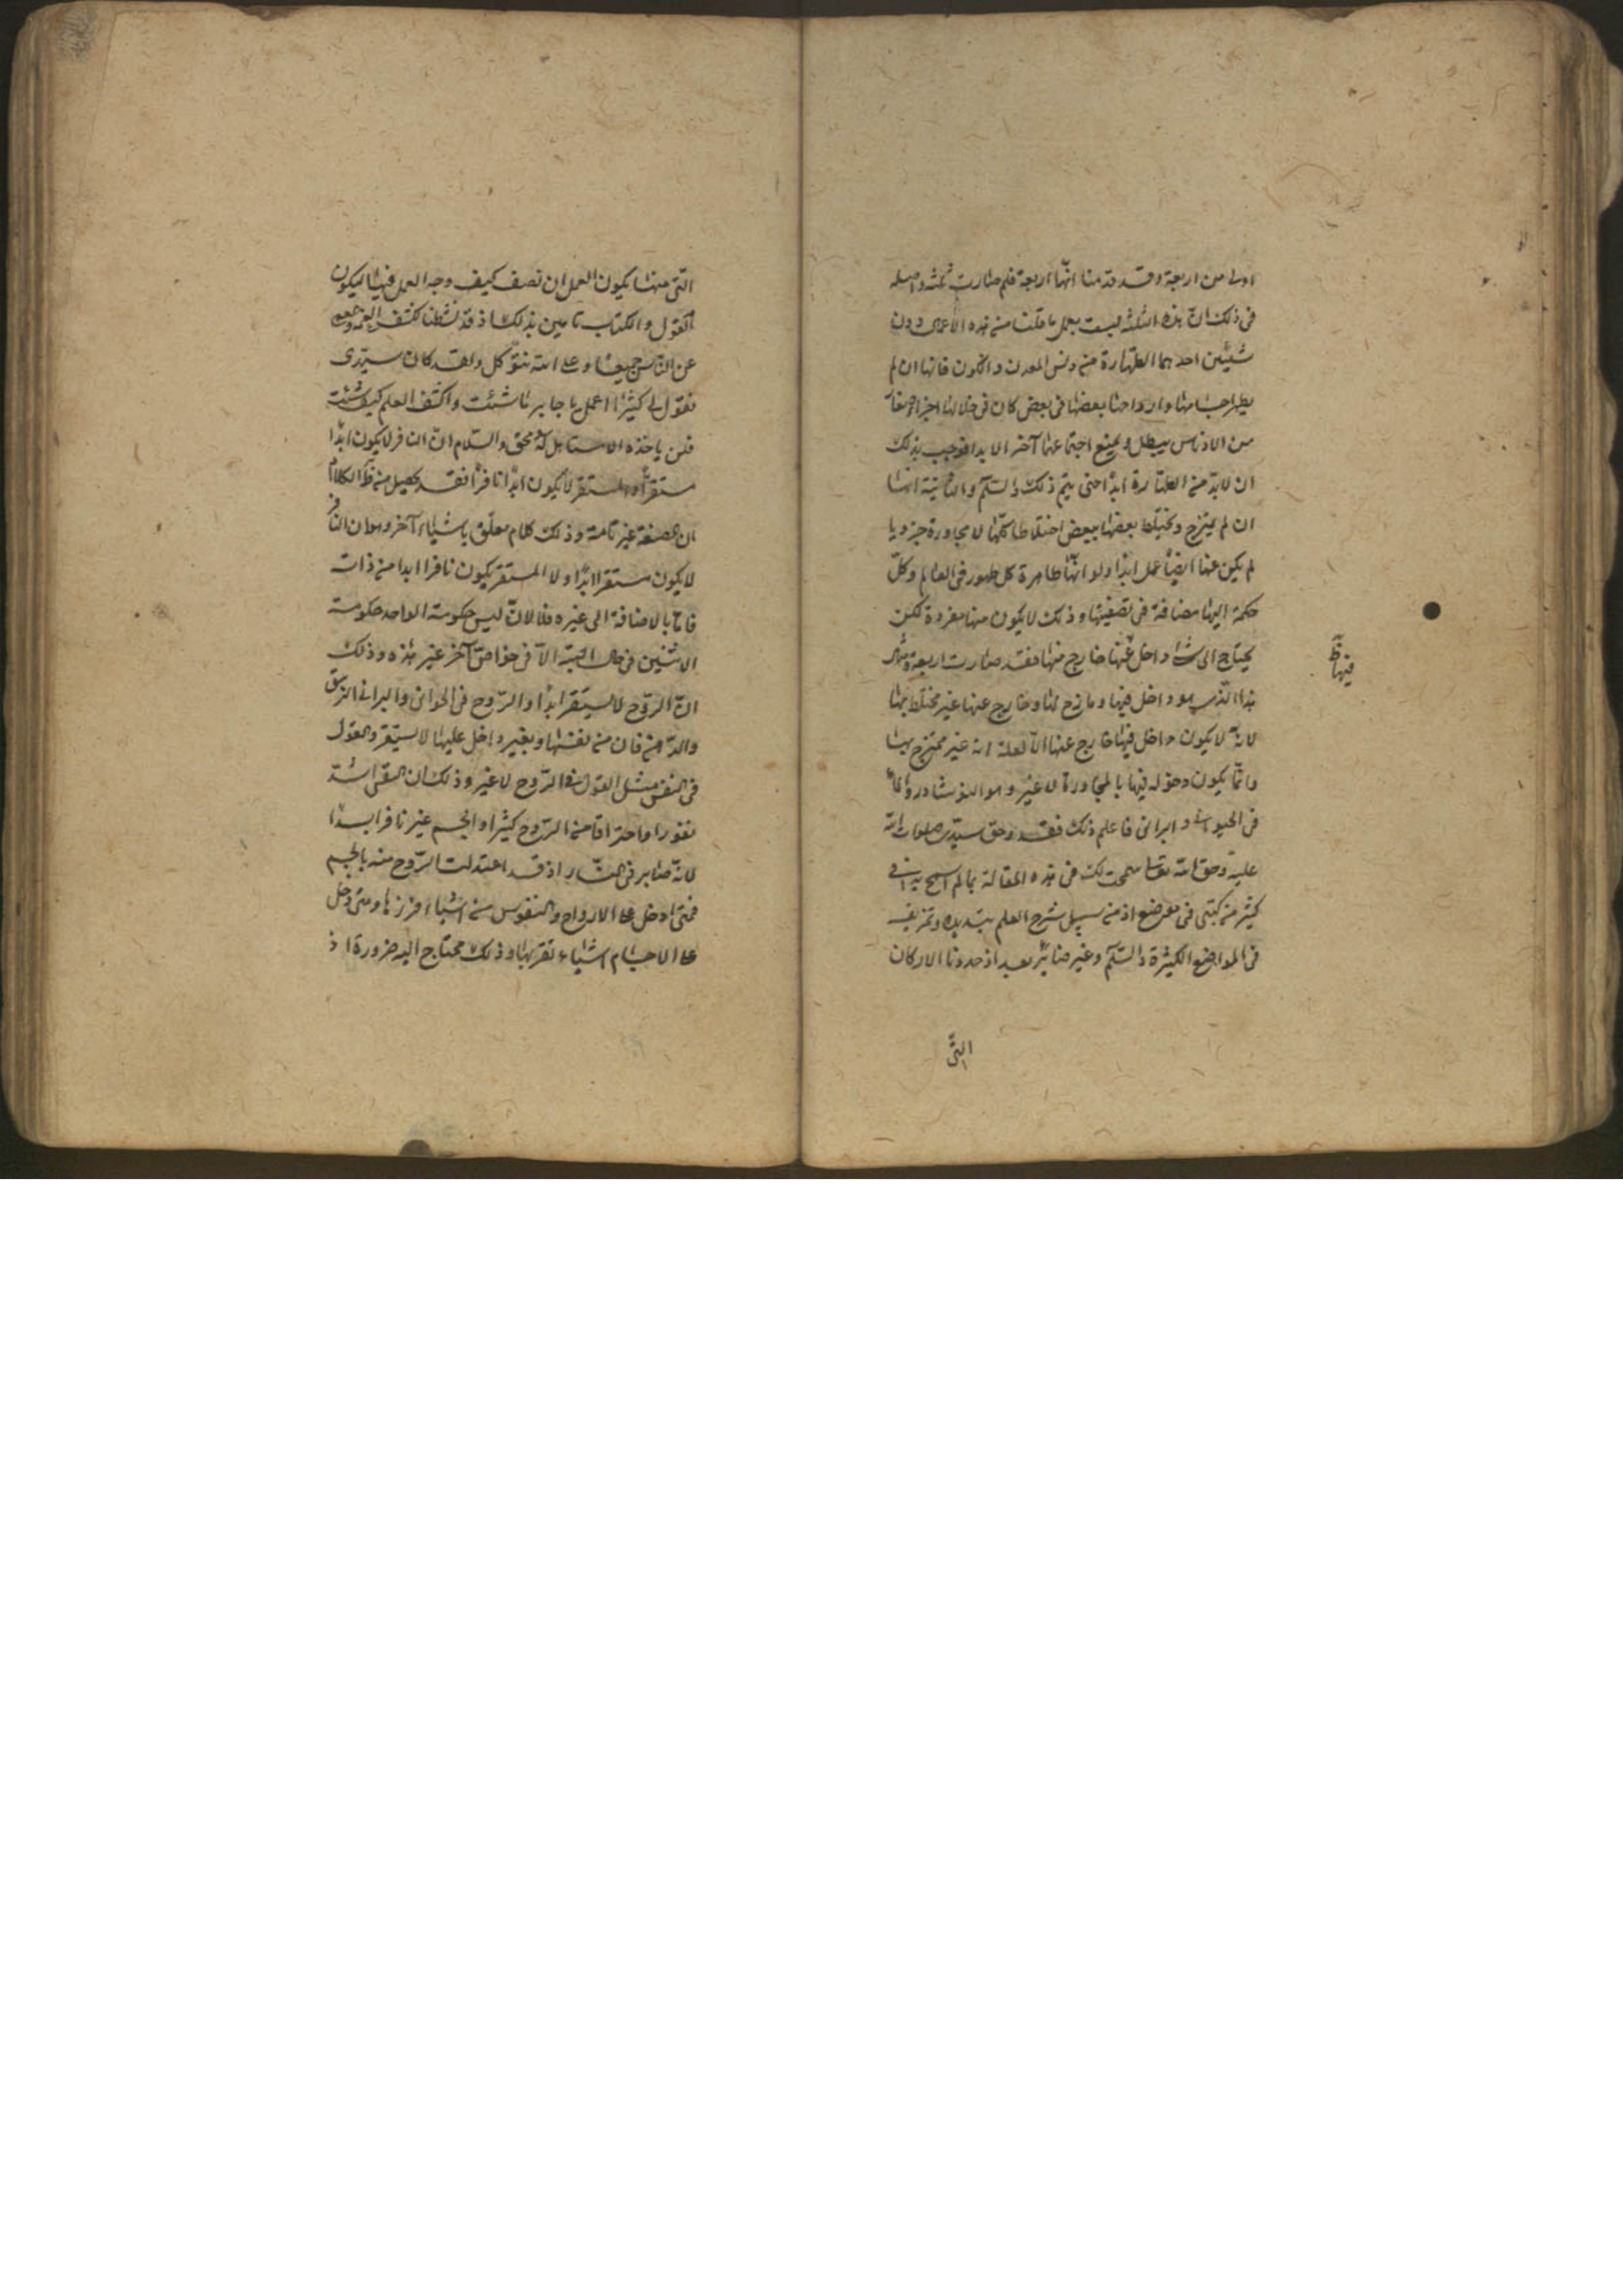 اولى من اربعة وقد قدمنا انّها اربعة فلم صارت ثلثة واصله
فى ذلك انّ هذه الثلثة ليست بعمل ما قلت منه هذه الاعمال دون
شيئين احدهما الطّهارة من دنس المعدن والكون فانها ان لم
يطهر اجسامها وارواحها بعضها فى بعض كان فى خلالها اجزاء
من الادناس يبطل ويمنع اجتماعها آخر الابد فوجب بذلك
ان لابدّ من الطّهارة ابداً حتى يتمّ ذلك والسّلم والثانية انها
ان لم يمتزج ويختلط بعضها ببعض اختلاطا كلّها لا مجاورة جزويا
لم يكن عنها ايضاً عمل ابداً ولو انّها طاهرة كل طهور فى العالم وكلّ
حكمة اليها مضافة فى تصفيتها وذلك لا يكون منها مفردة لكن
يحتاج الى داخل عنها خارج منها فقد صارت اربعة ومثال
هذا الّذى هو داخل فيها ومازج لها وخارج عنها غير مختلط بها
لانّه لا يكون داخل فيها خارج عنها الّا لعلة انه غير ممتزج بها
وانّما يكون دخوله فيها بالمجاورة لا غير وهو النوشادر
فى الحيوانى والبرانى فاعلم ذلك فقد وحق سيّدى صلوات الله
عليه وحق الله تعالى سمحت لك فى هذه المقالة بما لم اسمح به فى
كثير من كتبى فى موضع اذ من سبيل شرح العلم تبديده وتمزيقه
فى المواضع الكثيرة والسّلم وغير ضائر بعد اذ حددنا الاركان
فيها ظ
الّتى
الّتى منها يكون العمل ان نصف كيف وجه العمل فيها ليكون
القول والكتاب تامين بذلك اذ قد نشطنا لكشف
عن الناس جميعا وعلى الله نتوكل ولقد كان سيّدى
يقول لى كثيرا اعمل يا جابر ما شئت واكشف العلم كيف شئت
فلن ياخذه الا مستاهل له بحق والسّلام انّ النافر لا يكون ابداً
مستقراً والمستقر لا يكون ابداً نافراً فقد يحصل من هذا الكلام
ان الصنعة غير تامة وذلك كلام معلّق باشياء آخر وهو ان النافر
لا يكون مستقرا ابداً ولا المستقر يكون نافرا ابدا من ذاته
فاما بالاضافة الى غيره فلا لانّ ليس حكومة الواحد حكومة
الاثنين فى حال البتة الّا فى خواصّ آخر غير هذه وذلك
انّ الرّوح لا يستقر ابداً والرّوح فى الحوانى والبرانى الزيبق
والدّهن فان من نفسها وبغير داخل عليها لا يستقر والقول
فى النفس مثل القول فى الرّوح لا غير وذلك ان النفس اشدّ
نفورا واحتراقا من الرّوح كثيرا والجسم غير نافر ابداً
لانّه صابر فى النّار اذ قد اعتدلت الرّوح منه بالجسم
فمتى ادخل على الارواح والنفوس منه اشياء فرزها ومتى دخل
على الاجسام اشياء نفر بها وذلك محتاج اليه ضرورة اذ